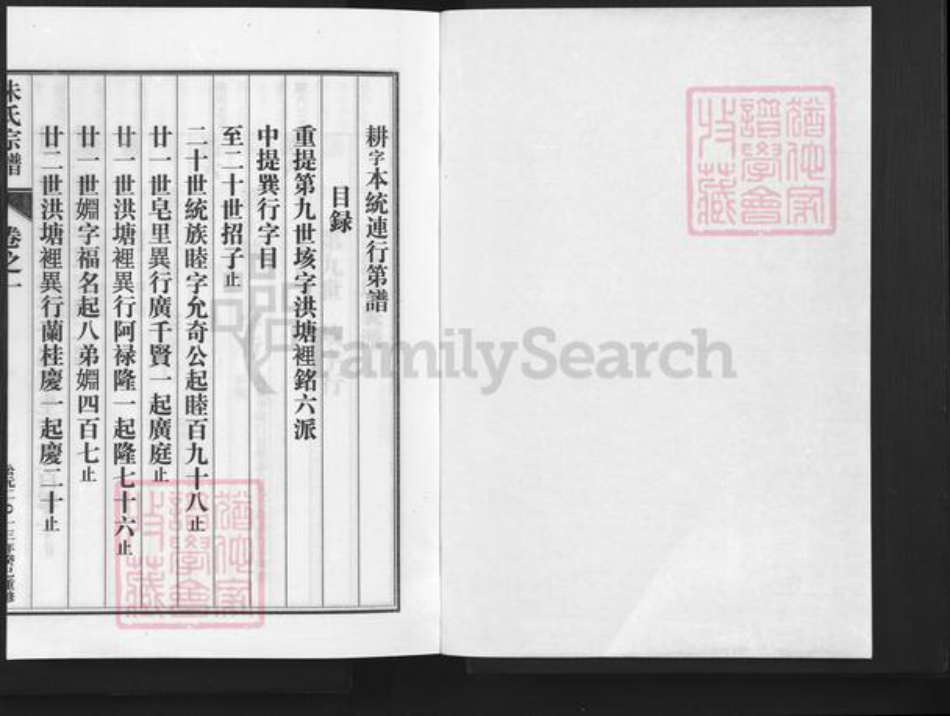 耕字本統連行第譜
目録
重提第九世垓字洪塘裡銘六派
中提巽行字目
至二十世招子止
二十世統族睦字允奇公起睦百九十八止
廿一世皂里異行廣千賢一起廣庭止
廿一世洪塘裡異行阿禄隆一起隆七十六止
廿一世婣字福名起八弟婣四百七止
廿二世洪塘裡異行蘭桂慶一起慶二十止
朱氏宗譜
卷之一
公元二〇一三年癸巳重修
猶他家譜學會收藏
猶他家譜學會收藏
FamilySearch